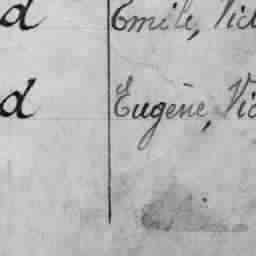 d Emile, Vic
d Eugène, Vic